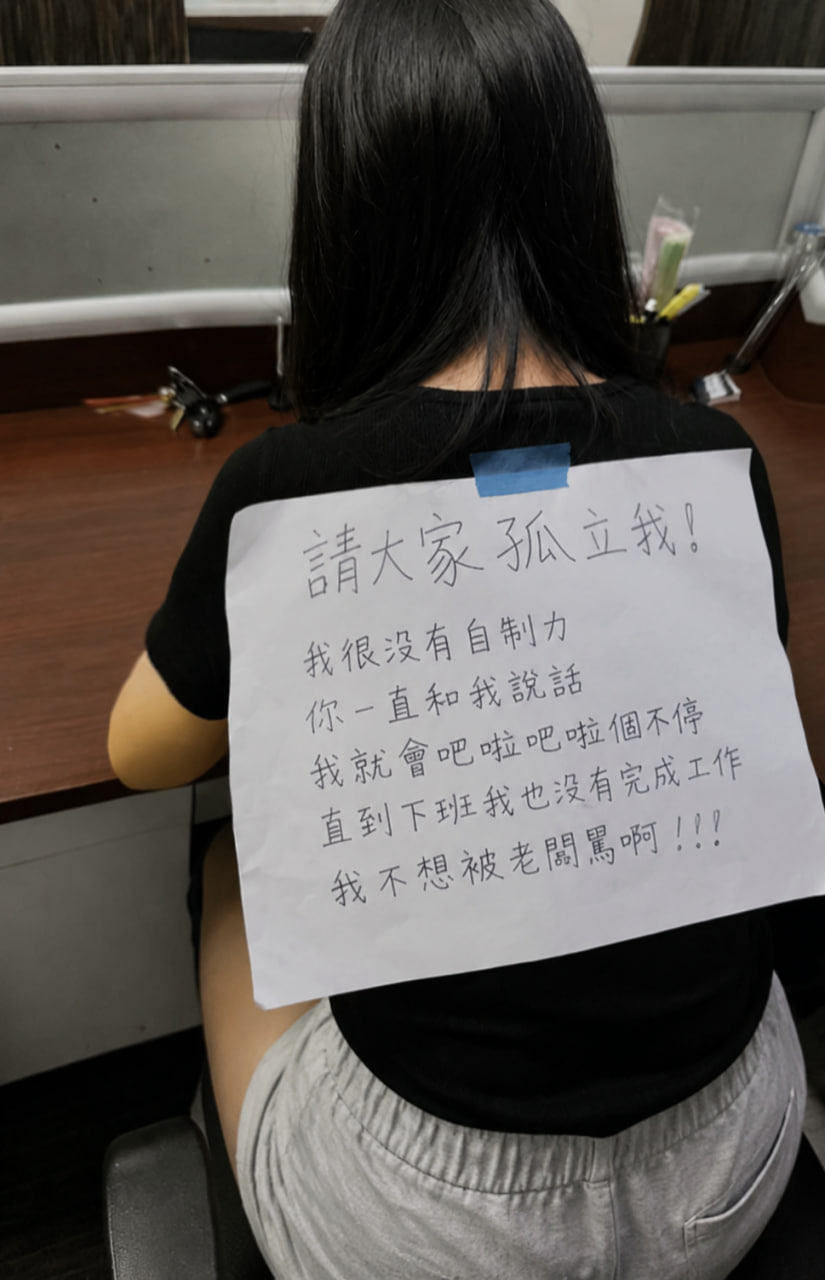 請大家孤立我!
我很没有自制力
你一直和我說話
我就會吧啦吧啦個不停
直到下班我也没有完成工作
我不想被老闆罵啊!!!